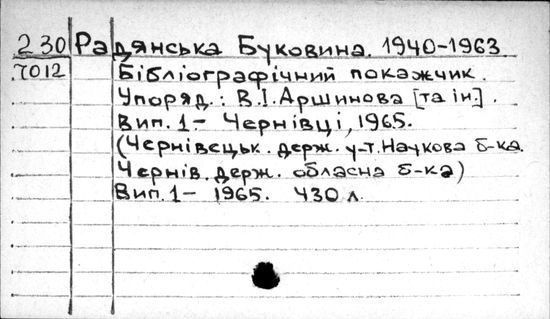 230 Радянська Буковина. 1940-1963.
7012 Бібліографічний покажчик.
Упоряд.: В.І.Аршинова [та ін.].
Вип.1- Чернівці, 1965.
(Чернівецьк. держ. у-т. Наукова б-ка.
Чернів. держ. обласна б-ка)
Вип.1- 1965. 430 л.